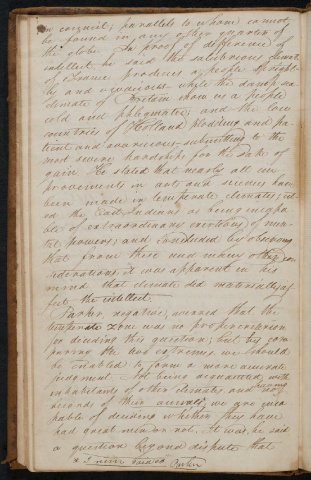 in conquest; parallels to whom cannot
be found in any other quarter of
the globe. In proof of difference of
intellect he said the salubrious climate
of France produces a people sprightly
and vivacious while the damp
climate of Britain shows us a people
cold and phlegmatic; and the low
countries of Holland plodding and pa-
tient and avaricious submitting to the
most severe hardships for the sake of
gain. He stated that nearly all im-
provements in arts and sciences have
been made in temperate climates; cit-
ed the East Indians as being incapa-
ble of extraordinary exertions of men-
tal powers; and concluded by observing
that from these and many other con-
siderations it was apparent in his
mind that climate did materially af-
fect the intellect.
Parker, negative, averred that the
temperate zone was no proper criterion
for deciding this question; but by com-
paring the two extremes we should
be enabled to form a more accurate
judgment. Not being acquainted with
inhabitants of other climates and having
records of their we are inca-
pable of deciding whether they have
had great men or not. It was, he said
a question beyond dispute that